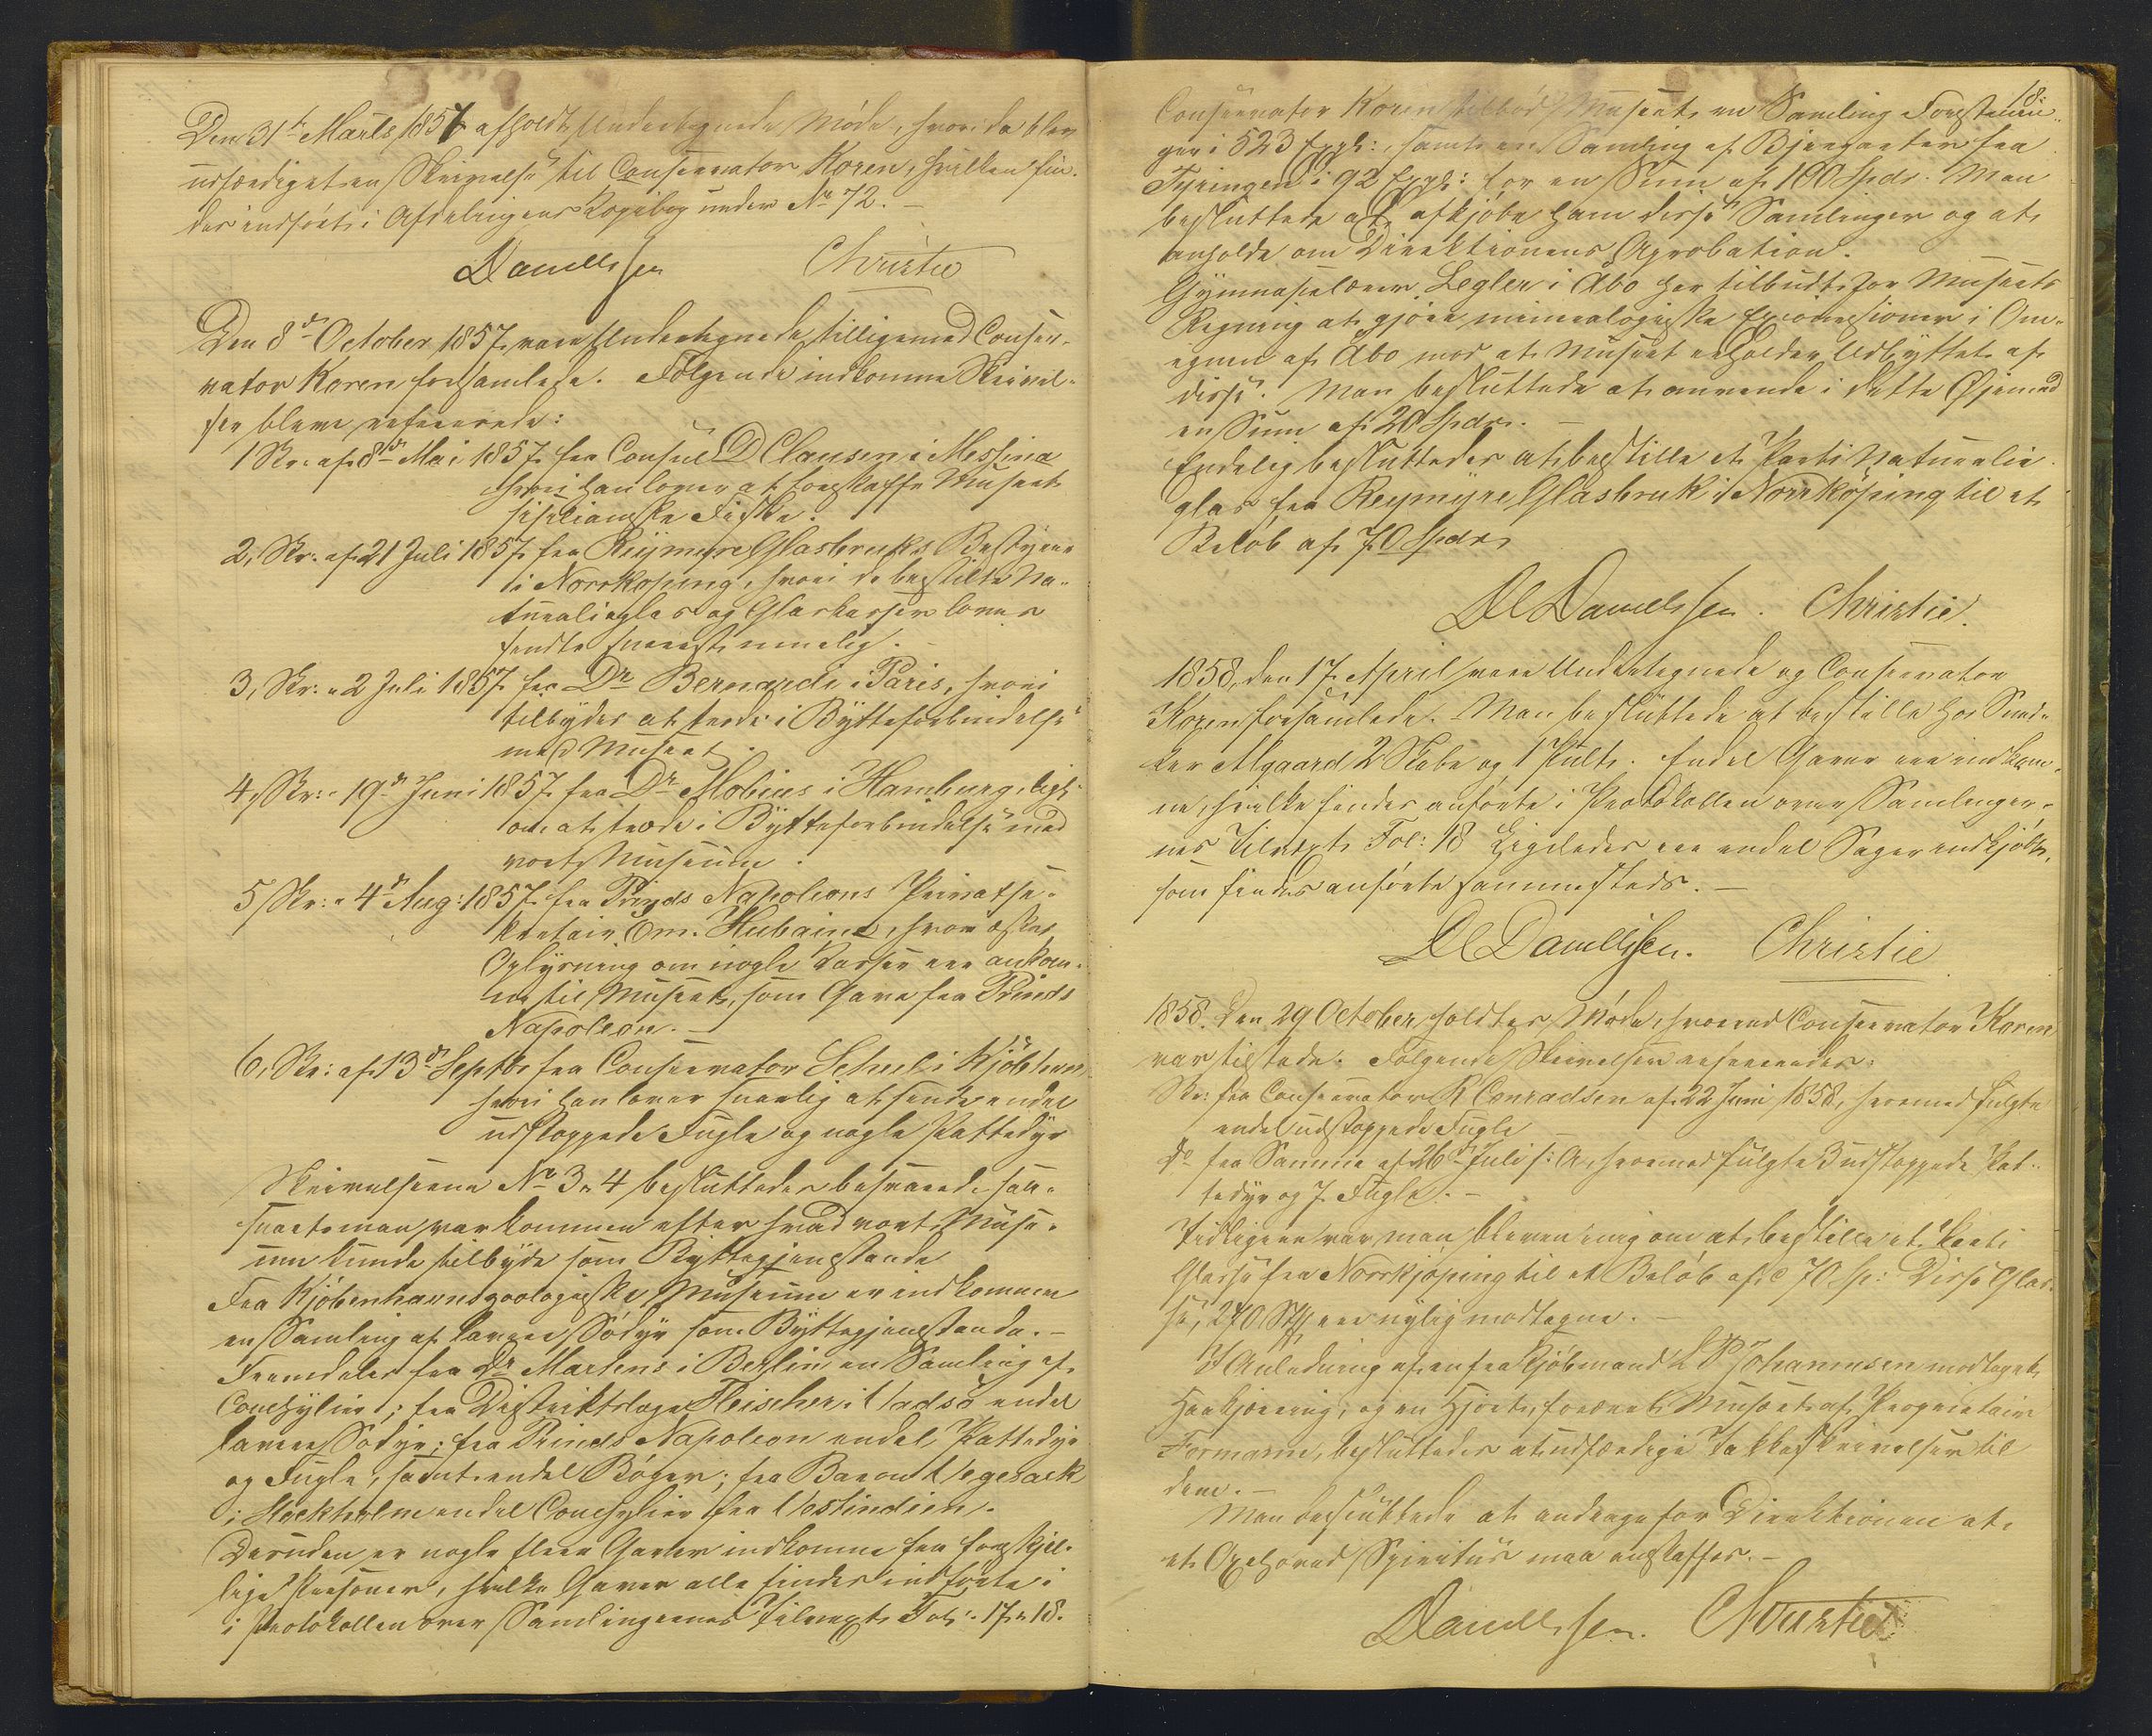 Den 31te Marts 1857 afholdt Undertegnede Møde, hvori da blev
udfærdiget en Skrivelse til Conservator Koren, hvilken fin-
des indført i Afdelingens Kopibog under No 72. –
Danielssen Christie
Den 8de October 1857 vare Undertegnede tilligemed Conser-
vator Koren forsamlede. Følgende indkomne Skrivel-
ser bleve refererede:
1 Skr: af 8de Mai 1857 fra Consul D Clausen i Messina
hvori han lover at forskaffe Museet
sisilianske Fiske.
2, Skr: af 21 Juli 1857 fra Reijmyre Glasbruks Bestyrer
i Norrkøping, hvori de bestilte Na-
turalieglas og Glaskasser loves
sendte snarest mueligt. –
3, Skr: " 2 Juli 1857 fra Dr Bernardi i Paris, hvori
tilbydes at træde i Bytteforbindelse
med Museet.
4, Skr: " 19de Juni 1857 fra Dr Møbius i Hamburg, ligs:
om at træde i Bytteforbindelse med
vort Museum.
5 Skr: " 4de Aug: 1857 fra Prinds Napoleons Privatse-
kretair Em. Hubaine, hvori æskes
Oplysning om nogle Kasser ere ankom-
ne til Museet, som Gave fra Prinds
Napoleon. –
6, Skr: af 13de Septbr fra Conservator Schul i Kjöbhavn
hvori han lover snarlig at sende endel
udstoppede Fugle og nogle Pattedyr
Skrivelserne No 3 " 4 besluttedes besvarede saa-
snart man var kommen efter hvad vort Muse-
um kunde tilbyde som Byttegjenstande
Fra Kjöbenhavns zoologiske Museum er indkommen
en Samling af lavere Södyr som Byttegjenstande. –
Fremdeles fra Dr Martens i Berlin en Samling af
Conchylier; fra Distriktslæge Fleischer i Vadsö endel
lavere Södyr; fra Prinds Napoleon endel Pattedyr
og Fugle, samt endel Bøger; fra Baron Vegesack
i Stockholm endel Conchylier fra Vestindien.
Desuden er nogle flere Gaver indkomne fra forskjel-
lige Personer, hvilke Gaver alle findes indførte i
i Protokollen over Samlingernes Tilvext Fol: 17 " 18.
18.
Conservator Koren tilbød Museet en Samling Forstenin-
ger i 523 Expl:, samt en Samling af Bjergarter fra
Tyringen i 92 Expl: for en Sum af 100 Spdr. Man
besluttede at afkjøbe ham disse Samlinger og at
anholde om Direktionens Aprobation.
Gymnasielærer Legler i Åbo har tilbudt for Museets
Regning at gjøre mineralogiske Excursioner i Om-
egnen af Åbo mod at Museet erholder Udbyttet af
disse. Man besluttede at anvende i dette Øjemed
en Sum af 20 Spdr. –
Endelig besluttedes at bestille et Parti Naturalie-
glas fra Reymyre Glasbruk i Norrköping til et
Beløb af 70 Spdr
DC Danielssen. Christie.
1858, den 17 April vare Undertegnede og Conservator
Koren forsamlede. Man besluttede at bestille hos Sned-
ker Algaard 2 Skabe og 1 Pult. Endel Gaver ere indkom-
ne, hvilke findes anførte i Protokollen over Samlinger-
nes Tilvext Fol: 18 Ligeledes ere endel Sager indkjøbte,
som findes anførte sammesteds. –
DC Danielssen. Christie
1858. Den 29 October holdtes Møde, hvorved Conservator Koren
var tilstede. Følgende Skrivelser refereredes:
Skr: fra Conservator R Conradsen af 22 Juni 1858, hvormed fulgte
endel udstoppede Fugle
Do fra Samme af 26de Juli s: A, hvormed fulgte 3 udstoppede Pat-
tedyr og 7 Fugle. –
Tidligere var man bleven enig om at bestille et Parti
Glasse fra Norrkjøping til et Beløb af c 70 Sp: Disse Glas-
se, 240 Stk, ere nylig modtagne. –
I Anledning af en fra Kjöbmand L P Johannesen modtaget
Haakjæring, og en Hjort, foræret Museet af Proprietair
Formann, besluttedes at udfærdige Takkeskrivelser til
dem. –
Man besluttede at andrage for Direktionen at
et Oxehoved Spiritus maa anskaffes. –
Danielssen. Christie